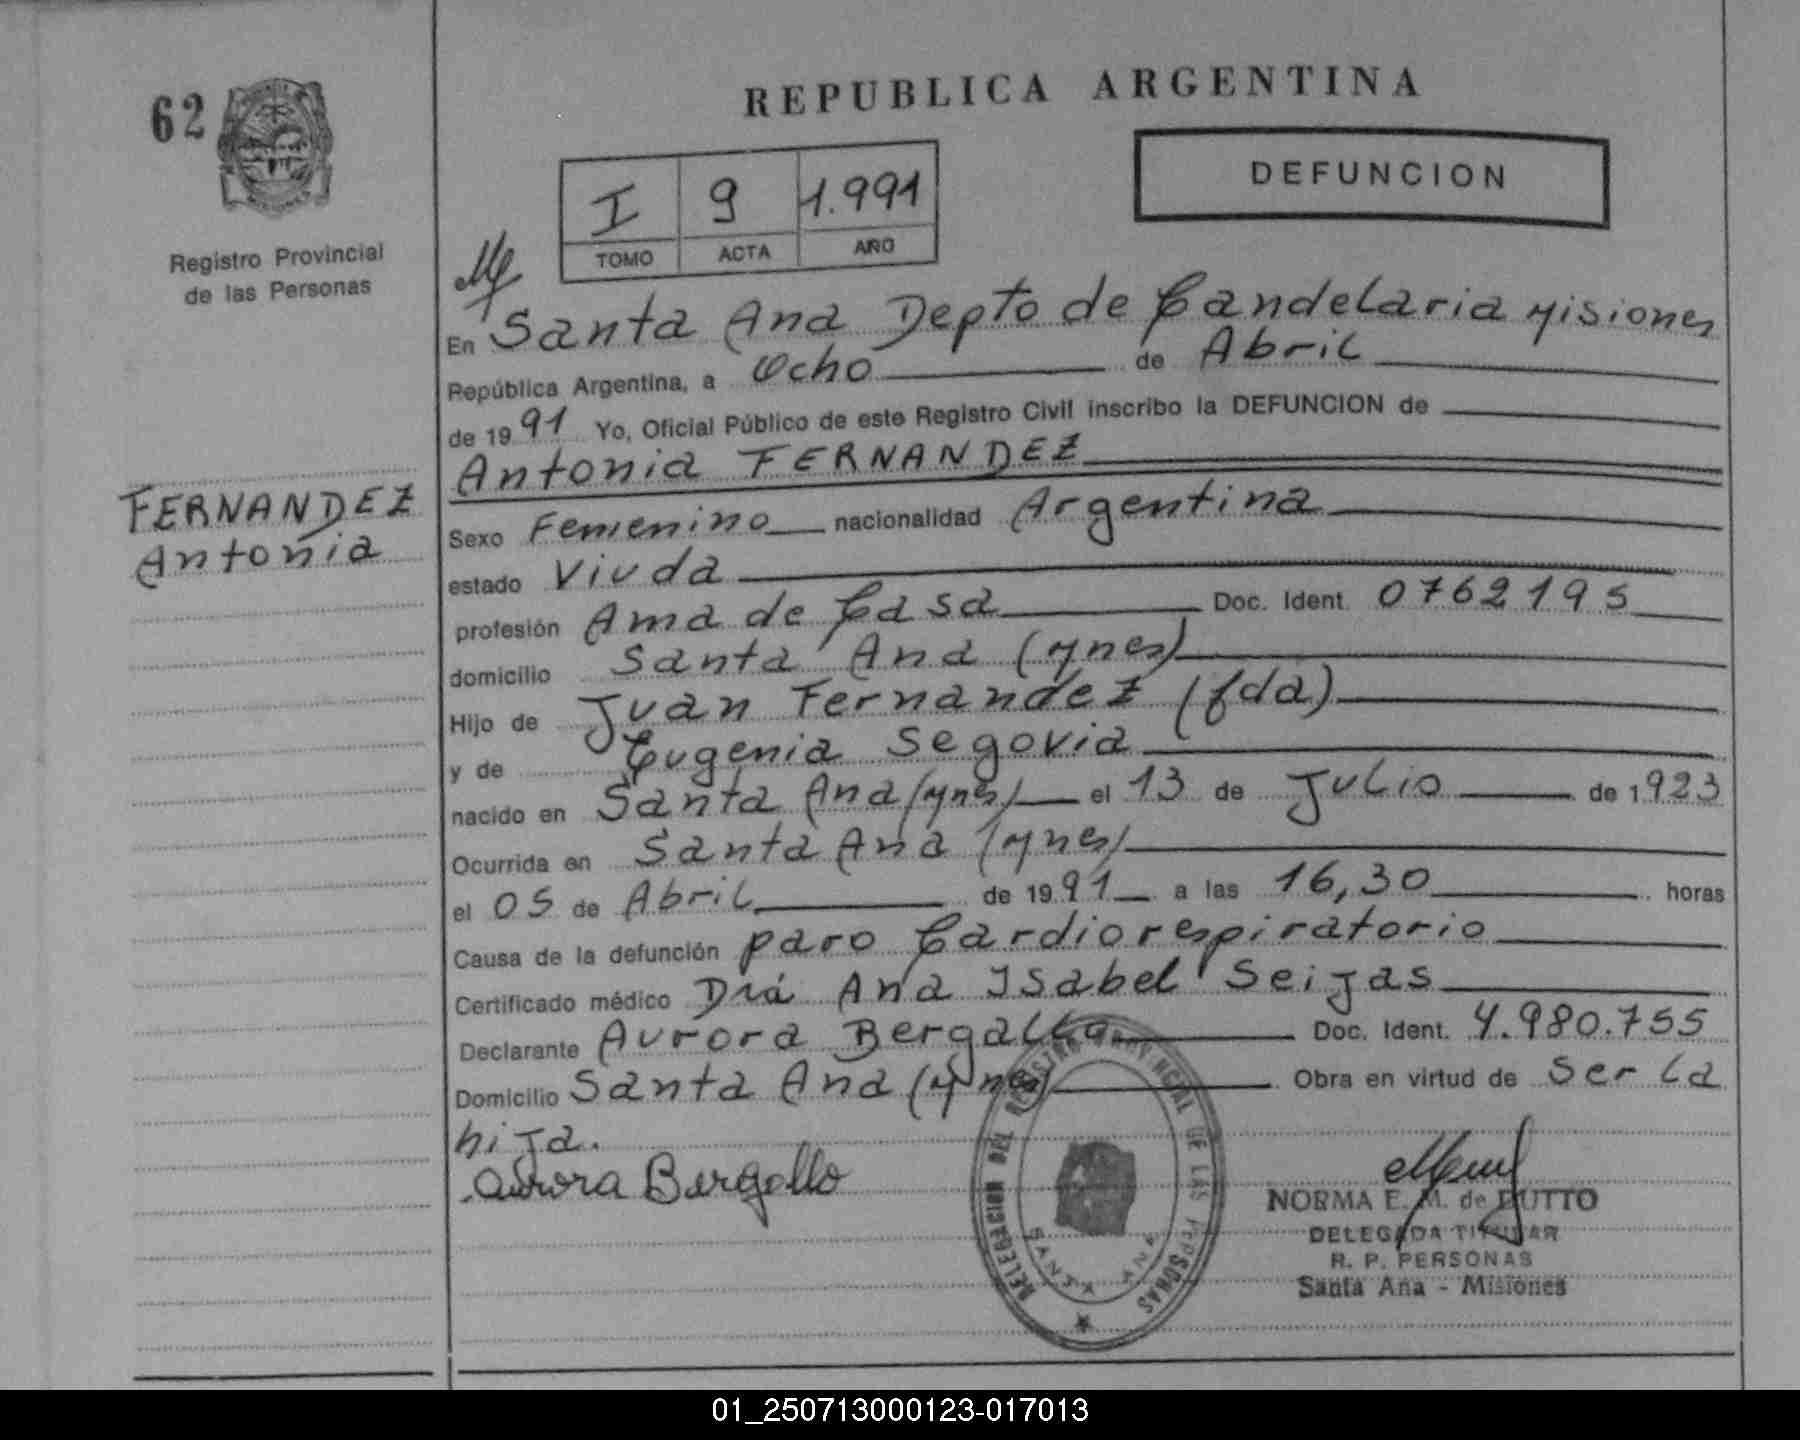 62
REPUBLICA ARGENTINA
DEFUNCION
I 9 1.991
TOMO ACTA AÑO
Registro Provincial
de las Personas
En Santa Ana Depto de Candelaria Misiones
República Argentina, a Ocho de Abril
de 1991 Yo, Oficial Público de este Registro Civil inscribo la DEFUNCION de
Antonia FERNANDEZ
FERNANDEZ
Antonia
Sexo Femenino nacionalidad Argentina
estado Viuda
profesión Ama de Casa Doc. Ident. 0762195
domicilio Santa Ana (Mnes)
Hijo de Juan Fernandez (fda)
y de Eugenia Segovia
nacido en Santa Ana (Mnes) el 13 de Julio de 1923
Ocurrida en Santa Ana (Mnes)
el 05 de Abril de 1991 a las 16,30 horas
Causa de la defunción paro Cardiorespiratorio
Certificado médico Drá Ana Isabel Seijas
Declarante Aurora Bergallo Doc. Ident. 4.980.755
Domicilio Santa Ana (Mnes) Obra en virtud de Ser la
hija.
Aurora Bergallo
DELEGACION DEL REGISTRO PROVINCIAL DE LAS PERSONAS
SANTA ANA
NORMA E. M. de DUTTO
DELEGADA TITULAR
R. P. PERSONAS
Santa Ana - Misiones
01_250713000123-017013